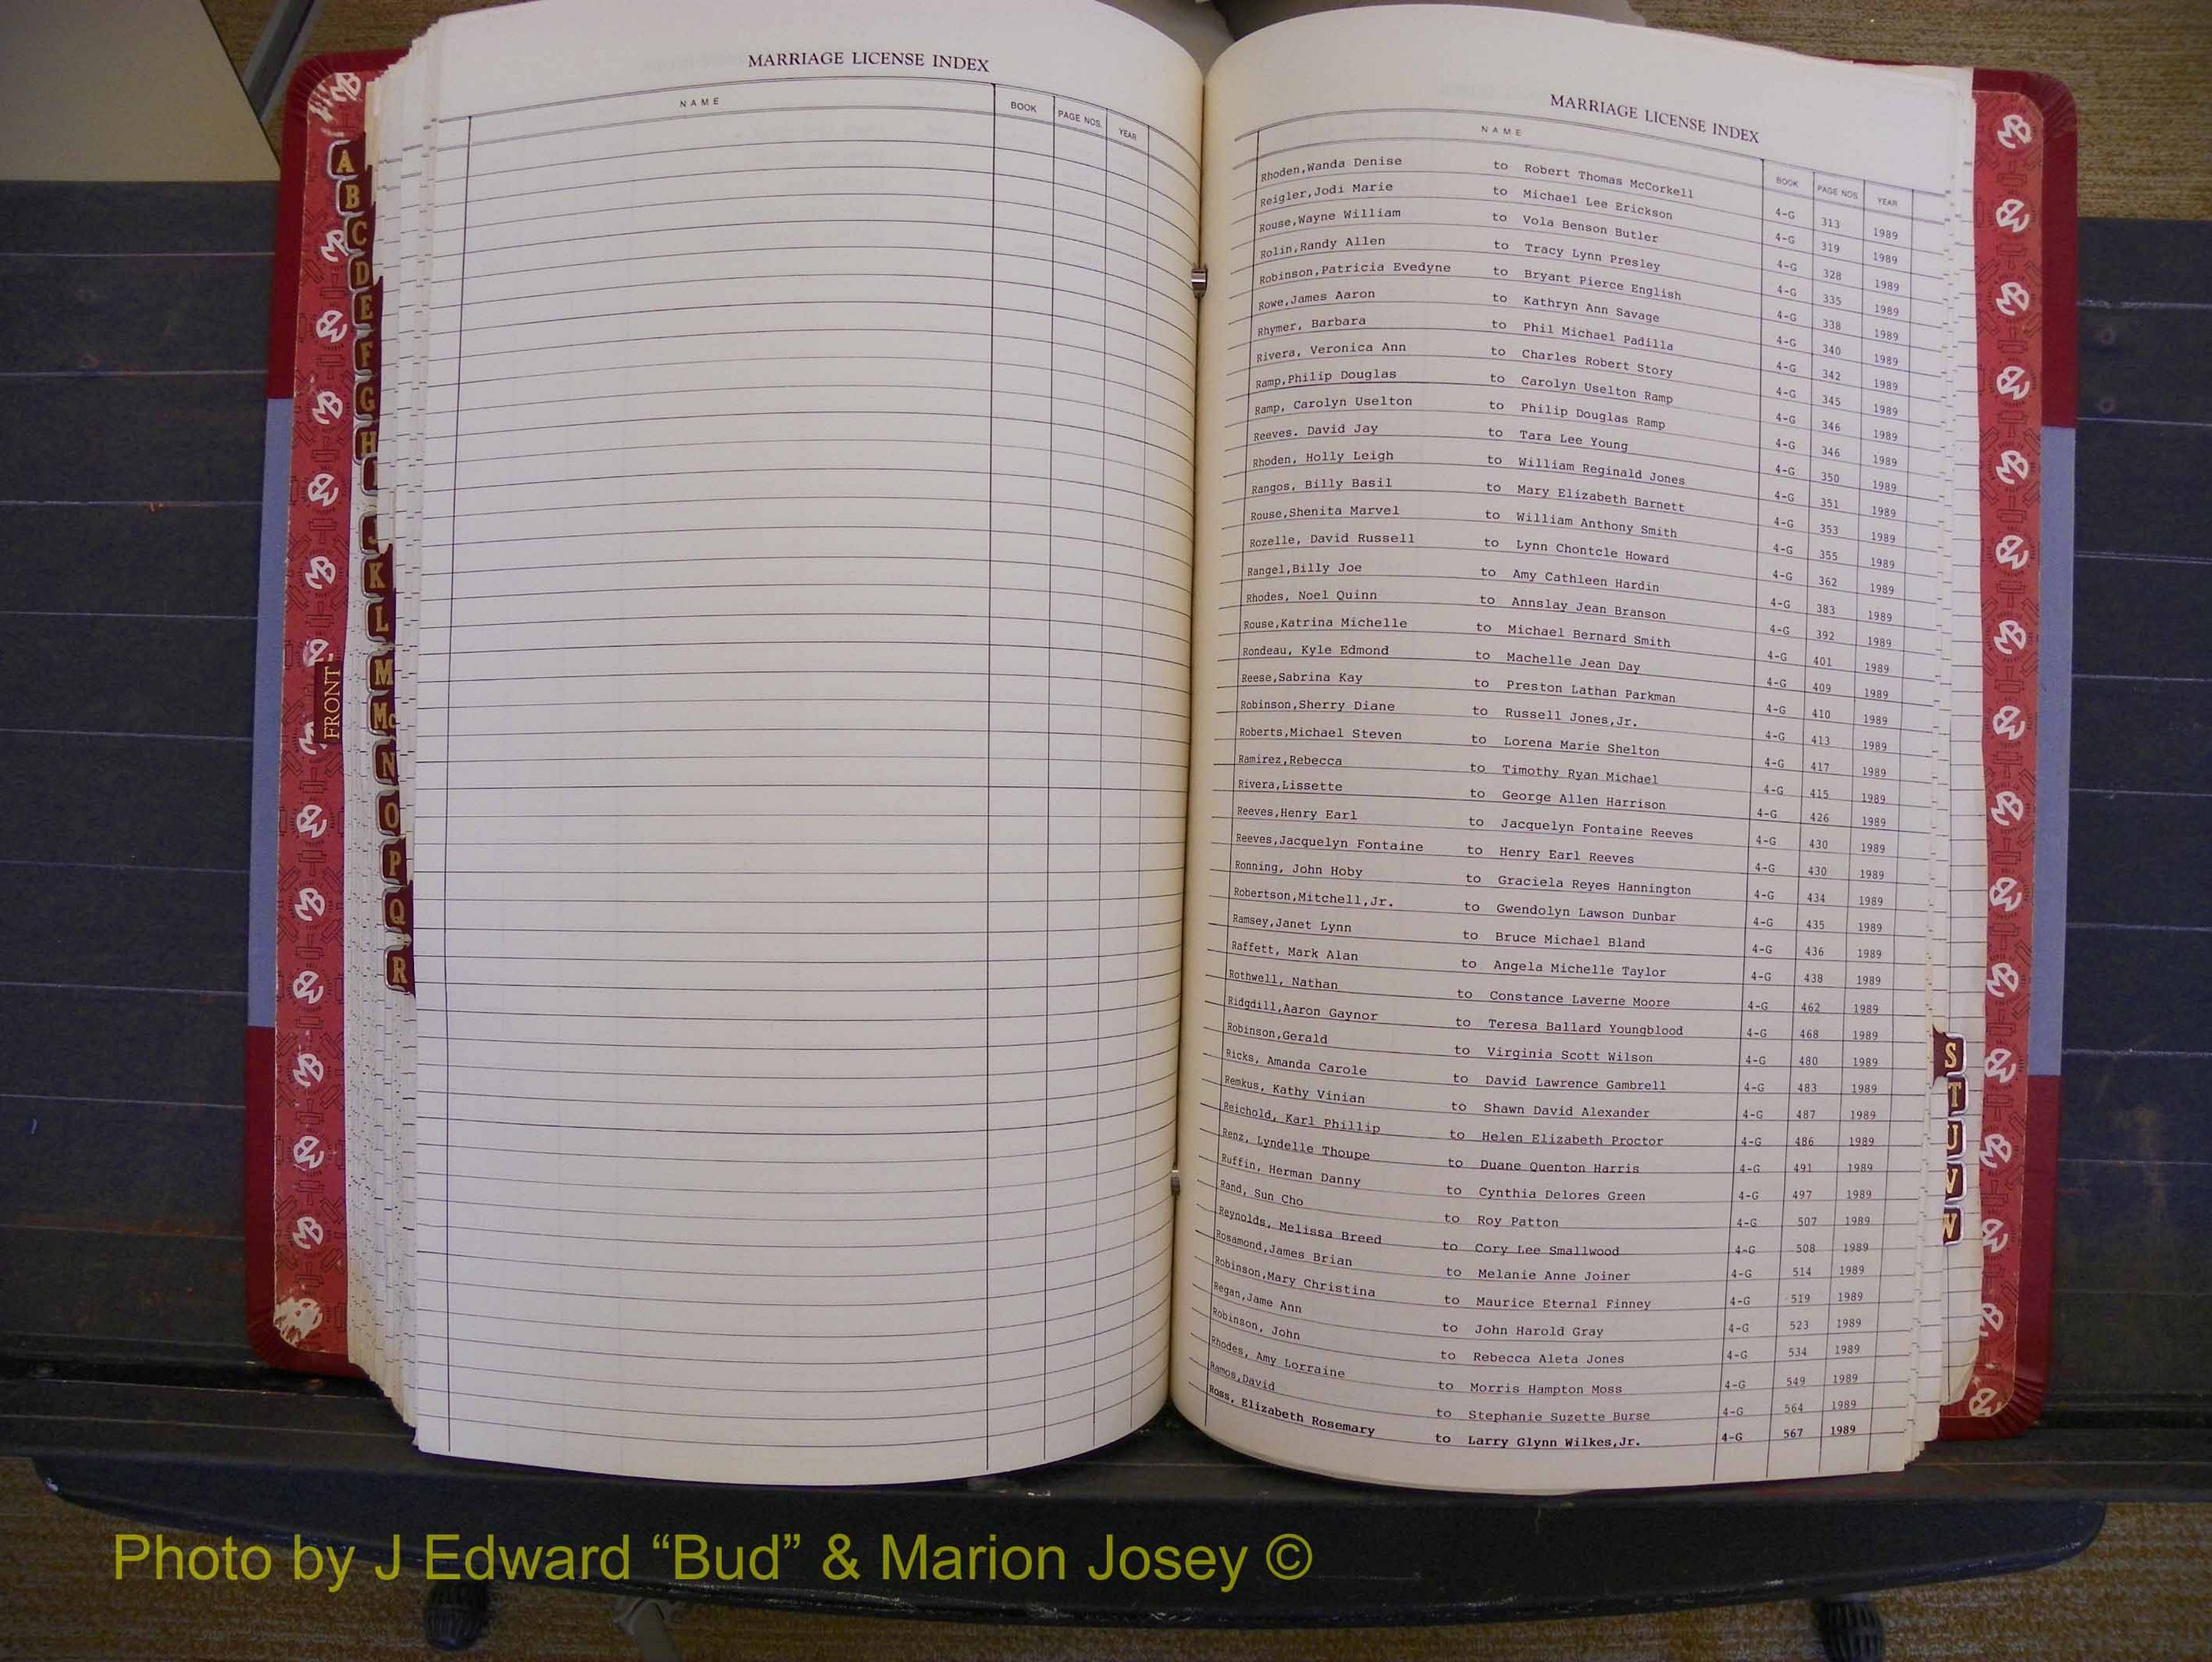 MARRIAGE LICENSE INDEX
NAME BOOK PAGE NOS. YEAR
A
B
C
D
E
F
G
H
I
J
K
L
M
Mc
N
O
P
Q
R
FRONT
MARRIAGE LICENSE INDEX
NAME BOOK PAGE NOS. YEAR
Rhoden,Wanda Denise to Robert Thomas McCorkell 4-G 313 1989
Reigler,Jodi Marie to Michael Lee Erickson 4-G 319 1989
Rouse,Wayne William to Vola Benson Butler 4-G 328 1989
Rolin,Randy Allen to Tracy Lynn Presley 4-G 335 1989
Robinson,Patricia Evedyne to Bryant Pierce English 4-G 338 1989
Rowe,James Aaron to Kathryn Ann Savage 4-G 340 1989
Rhymer, Barbara to Phil Michael Padilla 4-G 342 1989
Rivera, Veronica Ann to Charles Robert Story 4-G 345 1989
Ramp,Philip Douglas to Carolyn Uselton Ramp 4-G 346 1989
Ramp, Carolyn Uselton to Philip Douglas Ramp 4-G 346 1989
Reeves. David Jay to Tara Lee Young 4-G 350 1989
Rhoden, Holly Leigh to William Reginald Jones 4-G 351 1989
Rangos, Billy Basil to Mary Elizabeth Barnett 4-G 353 1989
Rouse,Shenita Marvel to William Anthony Smith 4-G 355 1989
Rozelle, David Russell to Lynn Chontcle Howard 4-G 362 1989
Rangel,Billy Joe to Amy Cathleen Hardin 4-G 383 1989
Rhodes, Noel Quinn to Annslay Jean Branson 4-G 392 1989
Rouse,Katrina Michelle to Michael Bernard Smith 4-G 401 1989
Rondeau, Kyle Edmond to Machelle Jean Day 4-G 409 1989
Reese,Sabrina Kay to Preston Lathan Parkman 4-G 410 1989
Robinson,Sherry Diane to Russell Jones,Jr. 4-G 413 1989
Roberts,Michael Steven to Lorena Marie Shelton 4-G 417 1989
Ramirez,Rebecca to Timothy Ryan Michael 4-G 415 1989
Rivera,Lissette to George Allen Harrison 4-G 426 1989
Reeves,Henry Earl to Jacquelyn Fontaine Reeves 4-G 430 1989
Reeves,Jacquelyn Fontaine to Henry Earl Reeves 4-G 430 1989
Ronning, John Hoby to Graciela Reyes Hannington 4-G 434 1989
Robertson,Mitchell,Jr. to Gwendolyn Lawson Dunbar 4-G 435 1989
Ramsey,Janet Lynn to Bruce Michael Bland 4-G 436 1989
Raffett, Mark Alan to Angela Michelle Taylor 4-G 438 1989
Rothwell, Nathan to Constance Laverne Moore 4-G 462 1989
Ridgdill,Aaron Gaynor to Teresa Ballard Youngblood 4-G 468 1989
Robinson,Gerald to Virginia Scott Wilson 4-G 480 1989
Ricks, Amanda Carole to David Lawrence Gambrell 4-G 483 1989
Remkus, Kathy Vinian to Shawn David Alexander 4-G 487 1989
Reichold, Karl Phillip to Helen Elizabeth Proctor 4-G 486 1989
Renz, Lyndelle Thoupe to Duane Quenton Harris 4-G 491 1989
Ruffin, Herman Danny to Cynthia Delores Green 4-G 497 1989
Rand, Sun Cho to Roy Patton 4-G 507 1989
Reynolds, Melissa Breed to Cory Lee Smallwood 4-G 508 1989
Rosamond,James Brian to Melanie Anne Joiner 4-G 514 1989
Robinson,Mary Christina to Maurice Eternal Finney 4-G 519 1989
Regan,Jame Ann to John Harold Gray 4-G 523 1989
Robinson, John to Rebecca Aleta Jones 4-G 534 1989
Rhodes, Amy Lorraine to Morris Hampton Moss 4-G 549 1989
Ramos,David to Stephanie Suzette Burse 4-G 564 1989
Ross, Elizabeth Rosemary to Larry Glynn Wilkes,Jr. 4-G 567 1989
S
T
U
V
W
Photo by J Edward “Bud” & Marion Josey ©